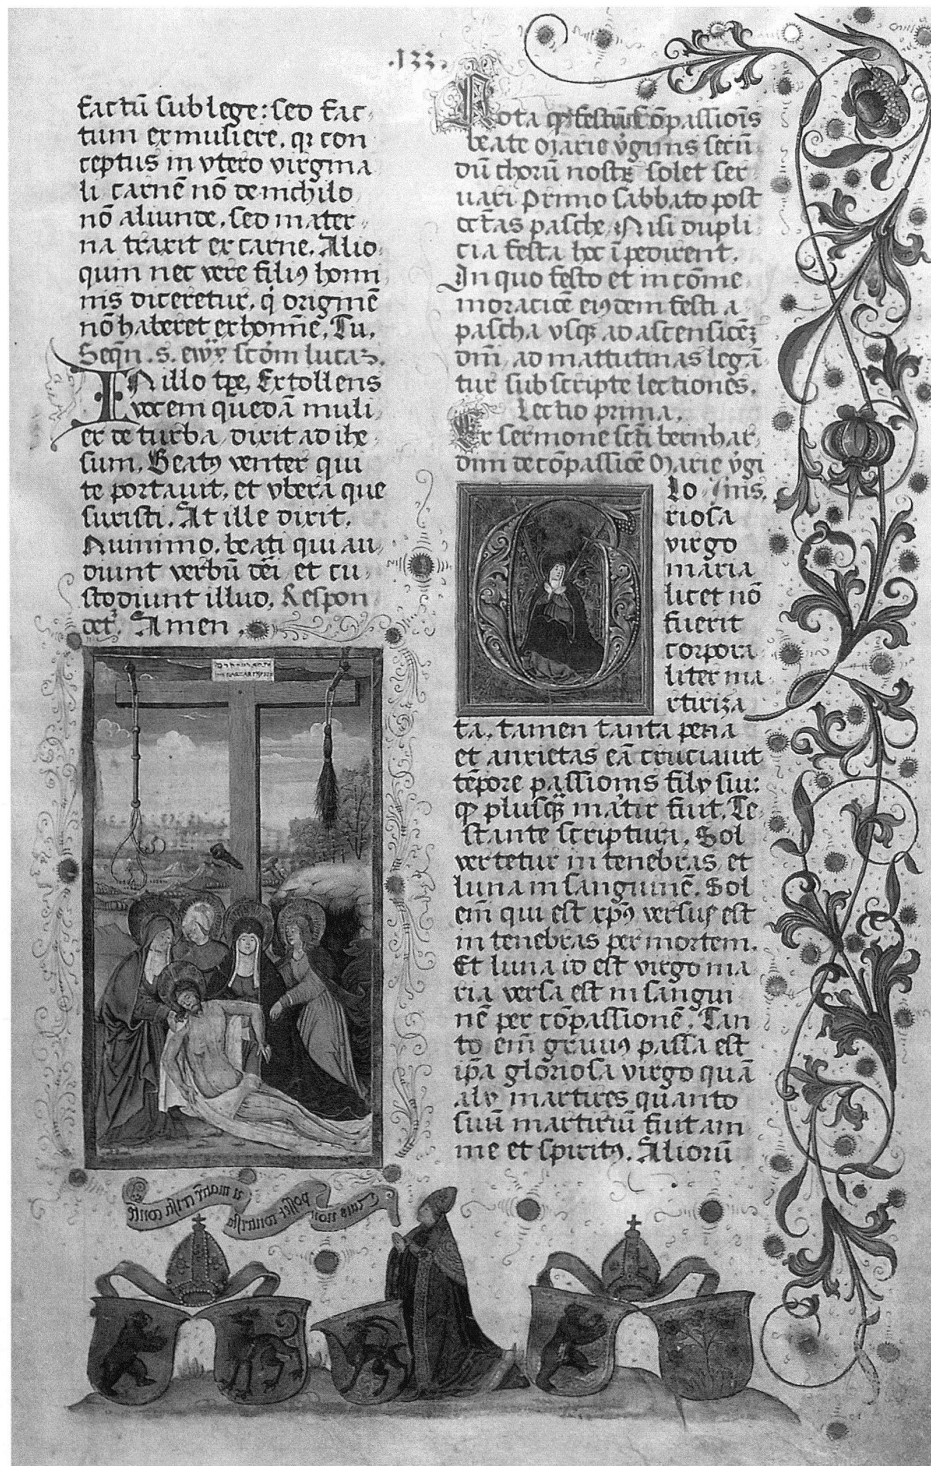 .133.
factū sub lege: sed fac-
tum ex muliere. qr con
ceptus in vtero virgina
li carnē nō de nichilo
nō aliunde, sed mater-
na traxit ex carne. Alio-
quin nec vere filiꝯ homi
nis diceretur, q̇ originē
nō haberet ex homīe. Tu.
Seqn̄. s. lucaz.
IN illo tꝑe, Extollens
vocem quedā muli
er de turba dixit ad ihe
sum. Beatꝯ venter qui
te portauit. et vbera que
suxisti. At ille dixit.
Quinimo. beati qui au
diunt verbū dei et cu-
stodiunt illud. Respon
det̄. Amen.
Nota festum cōpassiōis
beate Marie v̇ginis secū
dū chorū nostꝝ solet ser
uari Primo sabbato post
oct̄as pasche. Nisi dupli
cia festa hoc īpedirent.
In quo festo et in cōme
moratiōe eiꝯdem festi a
pascha vsqꝫ ad ascensiōeꝫ
dn̄i, ad mattutinas legā
tur subscripte lectiones.
Lectio prima.
Ex sermone sc̄ti bernhar
dini de cōpassiōe Marie v̇gi
nis.
Glo
riosa
virgo
maria
licet nō
fuerit
corpora
liter ma
rtiriza
ta, tamen tanta pena
et anxietas eā cruciauit
tēpore passionis filij sui:
qꝫ plusqꝫ mᵃtir fuit. Te
stante scriptura. Sol
vertetur in tenebras et
luna in sanguinē. Sol
em̄ qui est xp̄ꝯ versus est
in tenebras per mortem.
Et luna id est virgo ma
ria versa est in sangui
nē per cōpassionē. Tan
to em̄ grauiꝯ passa est
ip̄a gloriosa virgo quā
alij martires quanto
suū martiriū fuit ani
me et spiritꝯ. Aliorū
Quis non posset